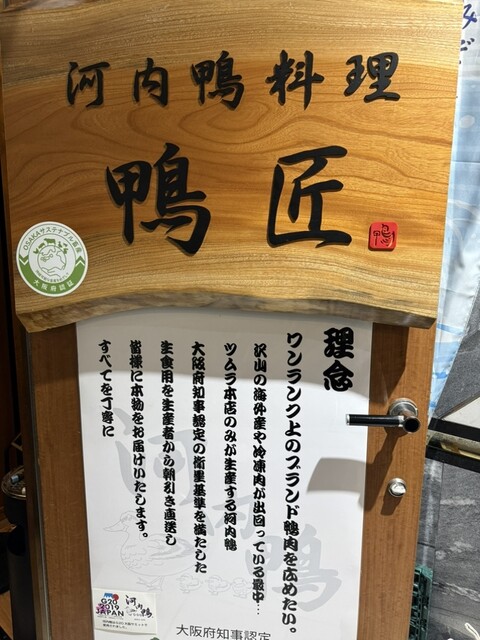 河内鴨料理
鴨匠
鴨
OSAKAサステナブル畜産
大阪府認証
理念
ワンランク上のブランド鴨肉を広めたい。
沢山の海外産や冷凍肉が出回っている最中…
ツムラ本店のみが生産する河内鴨
大阪府知事認定の衛星基準を満たした
生食用を生産者から朝引き直送し
皆様に本物をお届けいたします。
すべてを丁寧に
河内鴨
G20
2019
JAPAN
河内鴨
大阪府知事認定